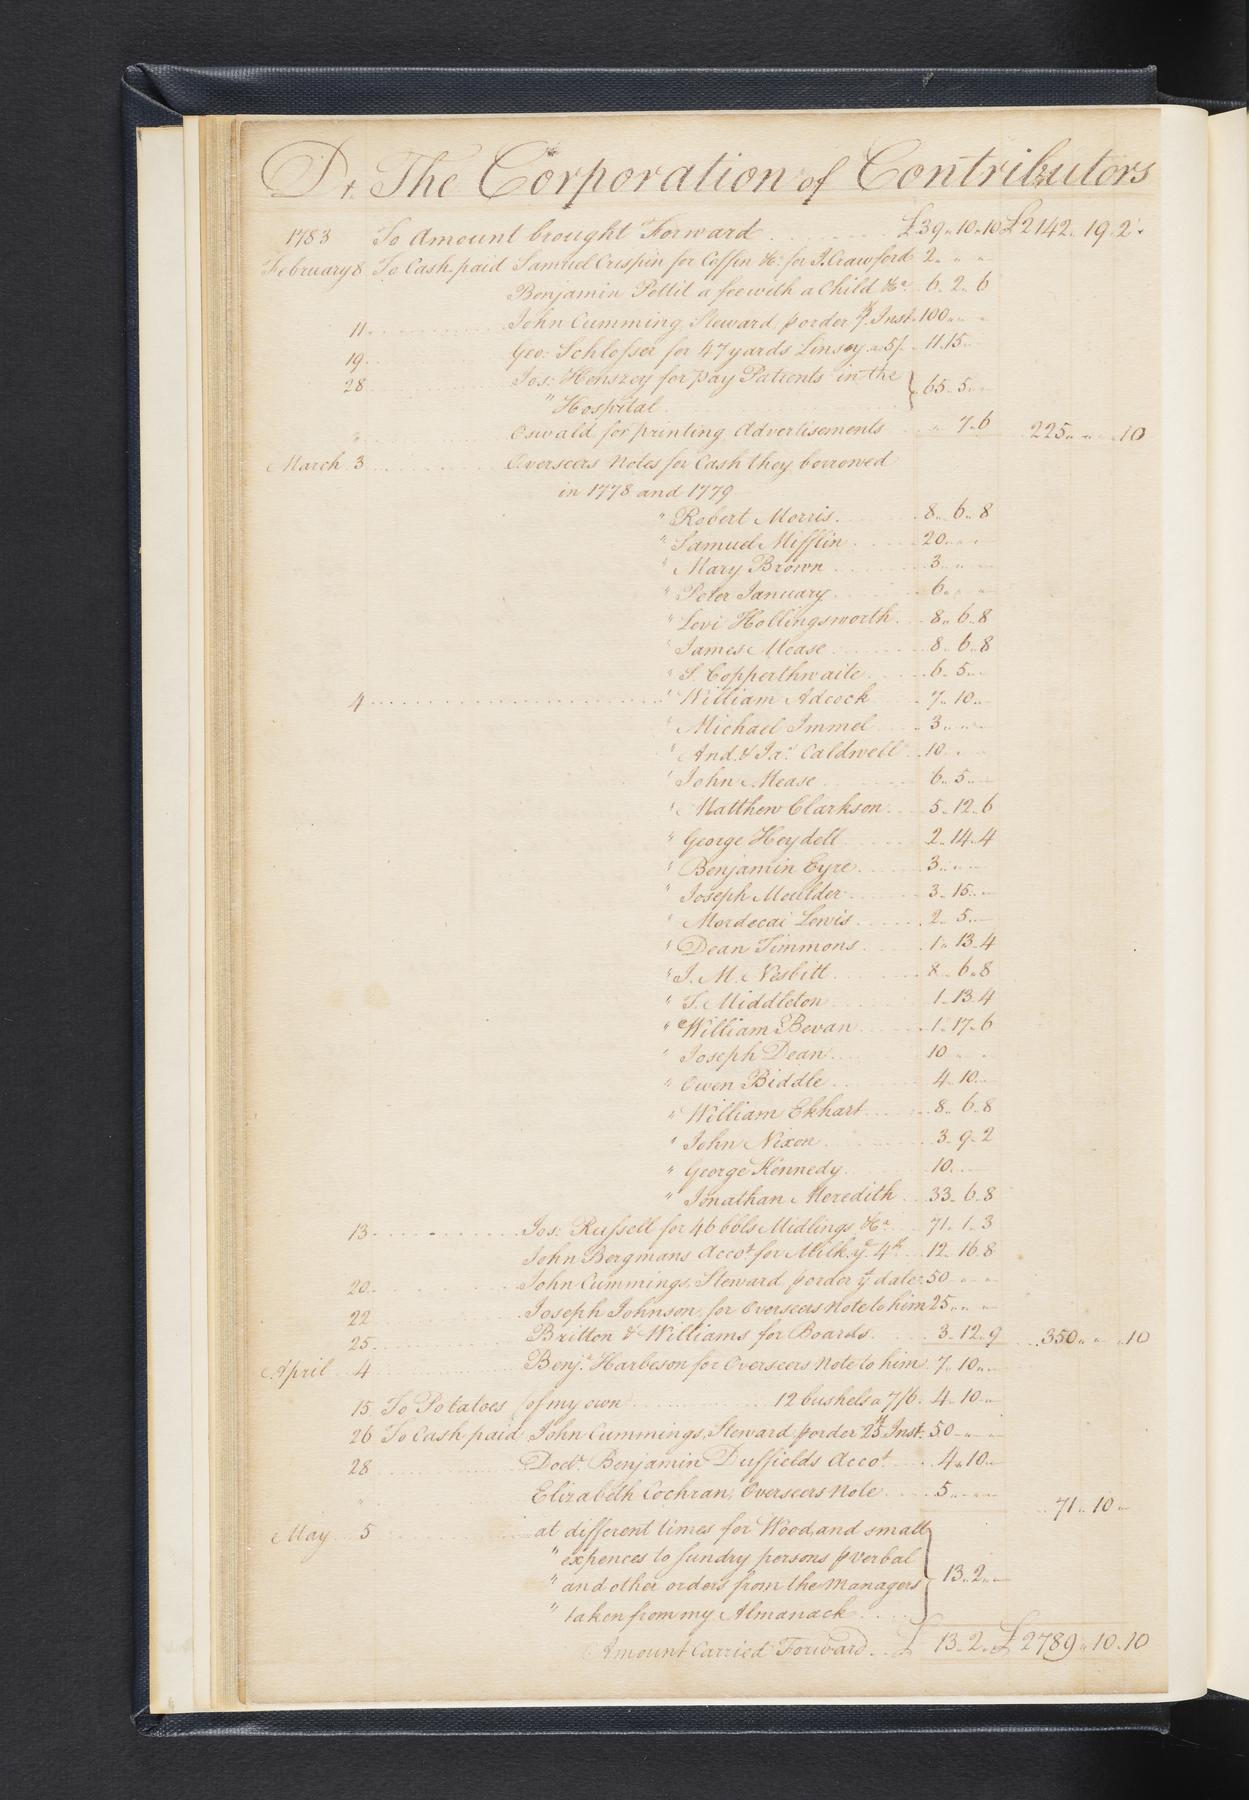 Dr. The Corporation of Contributors
1783 To Amount brought Forward £39.. 10.. 10 £2142.. 19.. 2
February 8 To Cash paid Samuel Crispin for Coffin &c. for J. Crawford 2.. " "
Benjamin Pettit a fee with a Child &c. 6.. 2.. 6
11 John Cumming, Steward p order 7th Inst. 100.. " "
19 Geo: Schlosser for 47 yards Linsey a 5/. 11.. 15..
28 Jos: Henszey for pay Patients in the
" Hospital 65.. 5..
" Oswald for printing Advertisements " 7.. 6 225.. " .. 10
March 3 Overseers Notes for Cash they borrowed
in 1778 and 1779
" Robert Morris 8.. 6.. 8
" Samuel Mifflin 20.. " "
" Mary Brown 3.. " "
" Peter January 6.. " "
" Levi Hollingsworth 8.. 6.. 8
" James Mease 8.. 6.. 8
" S. Copperthwaite 6.. 5..
4 " William Adcock 7.. 10..
" Michael Immel 3.. " "
" And. & Ja.s Caldwell 10.. "
" John Mease 6.. 5..
" Matthew Clarkson 5.. 12.. 6
" George Heydell 2.. 14.. 4
" Benjamin Eyre 3.. " "
" Joseph Moulder 3.. 15..
" Mordecai Lewis 2.. 5..
" Dean Timmons 1.. 13.. 4
" J. M. Nesbitt 8.. 6.. 8
" T. Middleton 1.. 13.. 4
" William Bevan 1.. 17.. 6
" Joseph Dean 10 " "
" Owen Biddle 4.. 10..
" William Ekhart 8.. 6.. 8
" John Nixon 3.. 9.. 2
" George Kennedy 10..
" Jonathan Meredith 33.. 6.. 8
13 Jos: Russell for 46 bbls Midlings &c. 71.. 1.. 3
John Bergmans Accot. for Milk ye. 4th 12.. 16.. 8
20 John Cummings, Steward p order yt. date 50.. " "
22 Joseph Johnson, for Overseers note to him 25.. " "
25 Britton & Williams for Boards 3.. 12.. 9 350.. " .. 10
April 4 Benj.n Harbeson for Overseers Note to him 7.. 10..
15 To Potatoes (of my own 12 bushels a 7/6. 4.. 10..
26 To Cash paid John Cummings, Steward p order 25th Inst. 50.. " "
28 Doctr. Benjamin Duffields Accot. 4.. 10..
" Elizabeth Cochran, Overseers Note 5.. " " 71.. 10..
May 5 at different times for Wood, and small
" expences to sundry persons p verbal
" and other orders from the Managers 13.. 2..
" taken from my Almanack
Amount Carried Forward £ 13.. 2.. £2789.. 10.. 10